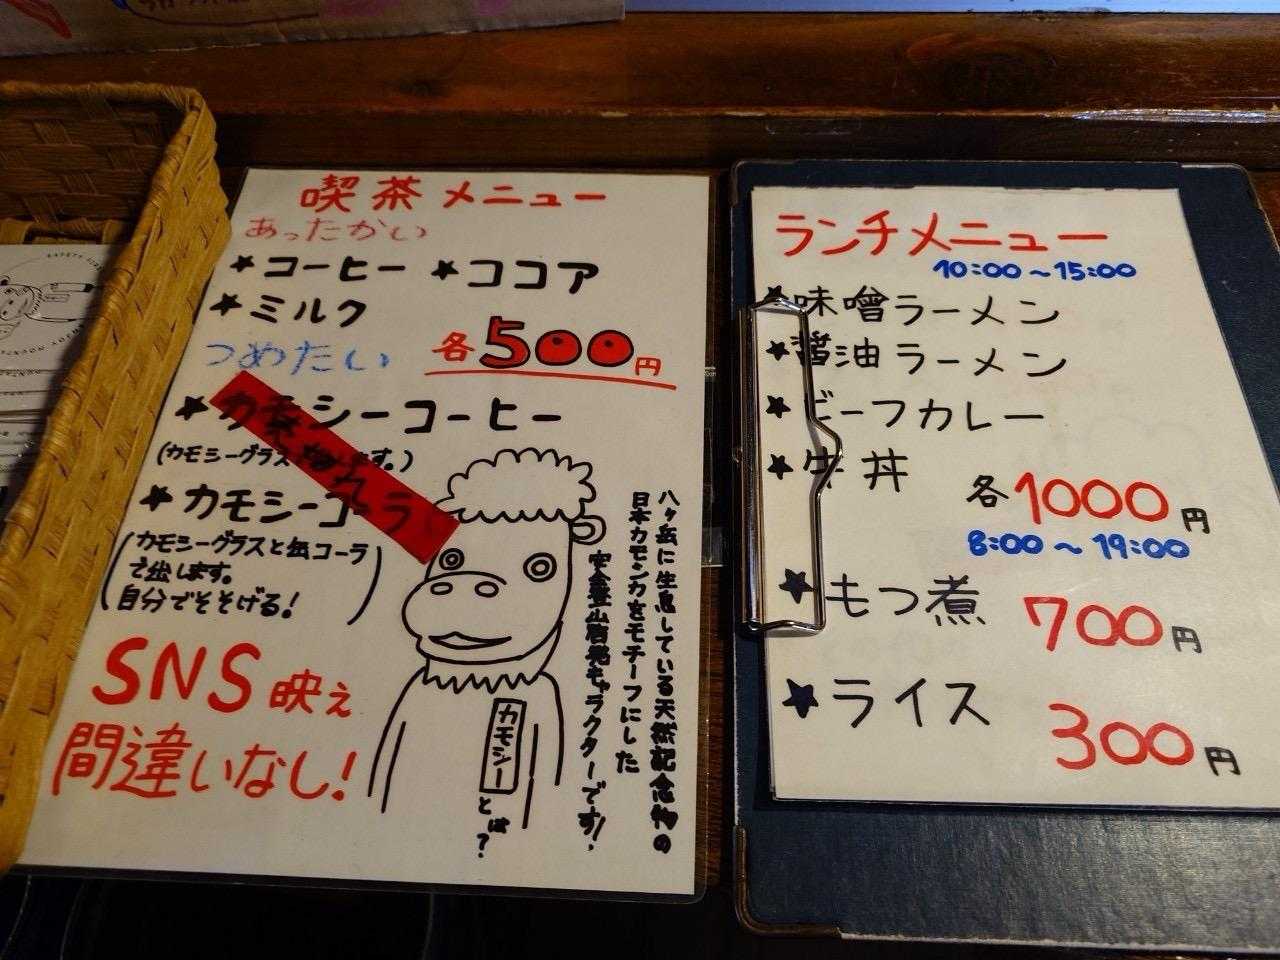 喫茶メニュー
あったかい
★コーヒー ★ココア
★ミルク
各500円
つめたい
★カモシーコーヒー
(カモシーグラス
ます。)
★カモシーコーラ
(カモシーグラスと缶コーラ
で出します。
自分でそそげる!)
SNS映え
間違いなし!
カモシーとは?
八ヶ岳に生息している天然記念物の
日本カモシカをモチーフにした
安全登山啓発キャラクターです!
ランチメニュー
10:00~15:00
★味噌ラーメン
★醤油ラーメン
★ビーフカレー
★牛丼
各1000円
8:00~19:00
★もつ煮 700円
★ライス 300円